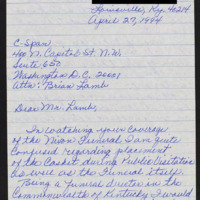 Louisville, Ky. 40214
April 27, 1994
C-Span
400 N. Capitol St. N.W.
Suite 650
Washington D.C. 20001
Attn: Brian Lamb
Dear Mr. Lamb,
In watching your coverage
of the Nixon Funeral I am quite
confused regarding placement
of the Casket during Public Visitation
as well as the Funeral itself.
Being a funeral director in the
Commonwealth of Kentucky I would